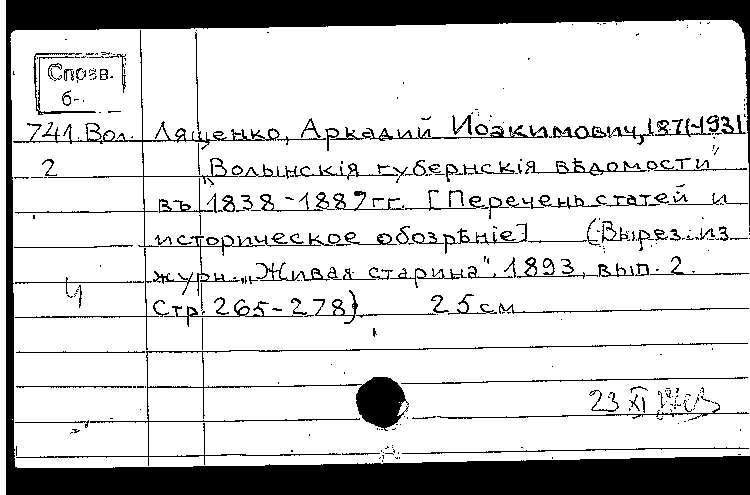 Справ.
б-
741.Вол. Лященко, Аркадий Иоакимович, 1871-1931
2 „Волынскія губернскія вѣдомости"
въ 1838-1887 гг. [Перечень статей и
историческое обозрѣніе] (Вырез. из
журн. „Живая старина". 1893, вып. 2.
Стр. 265-278) 25 см.
23 XI